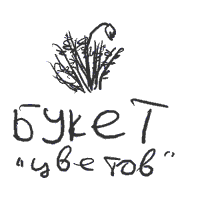 БУКеТ
"цветов"